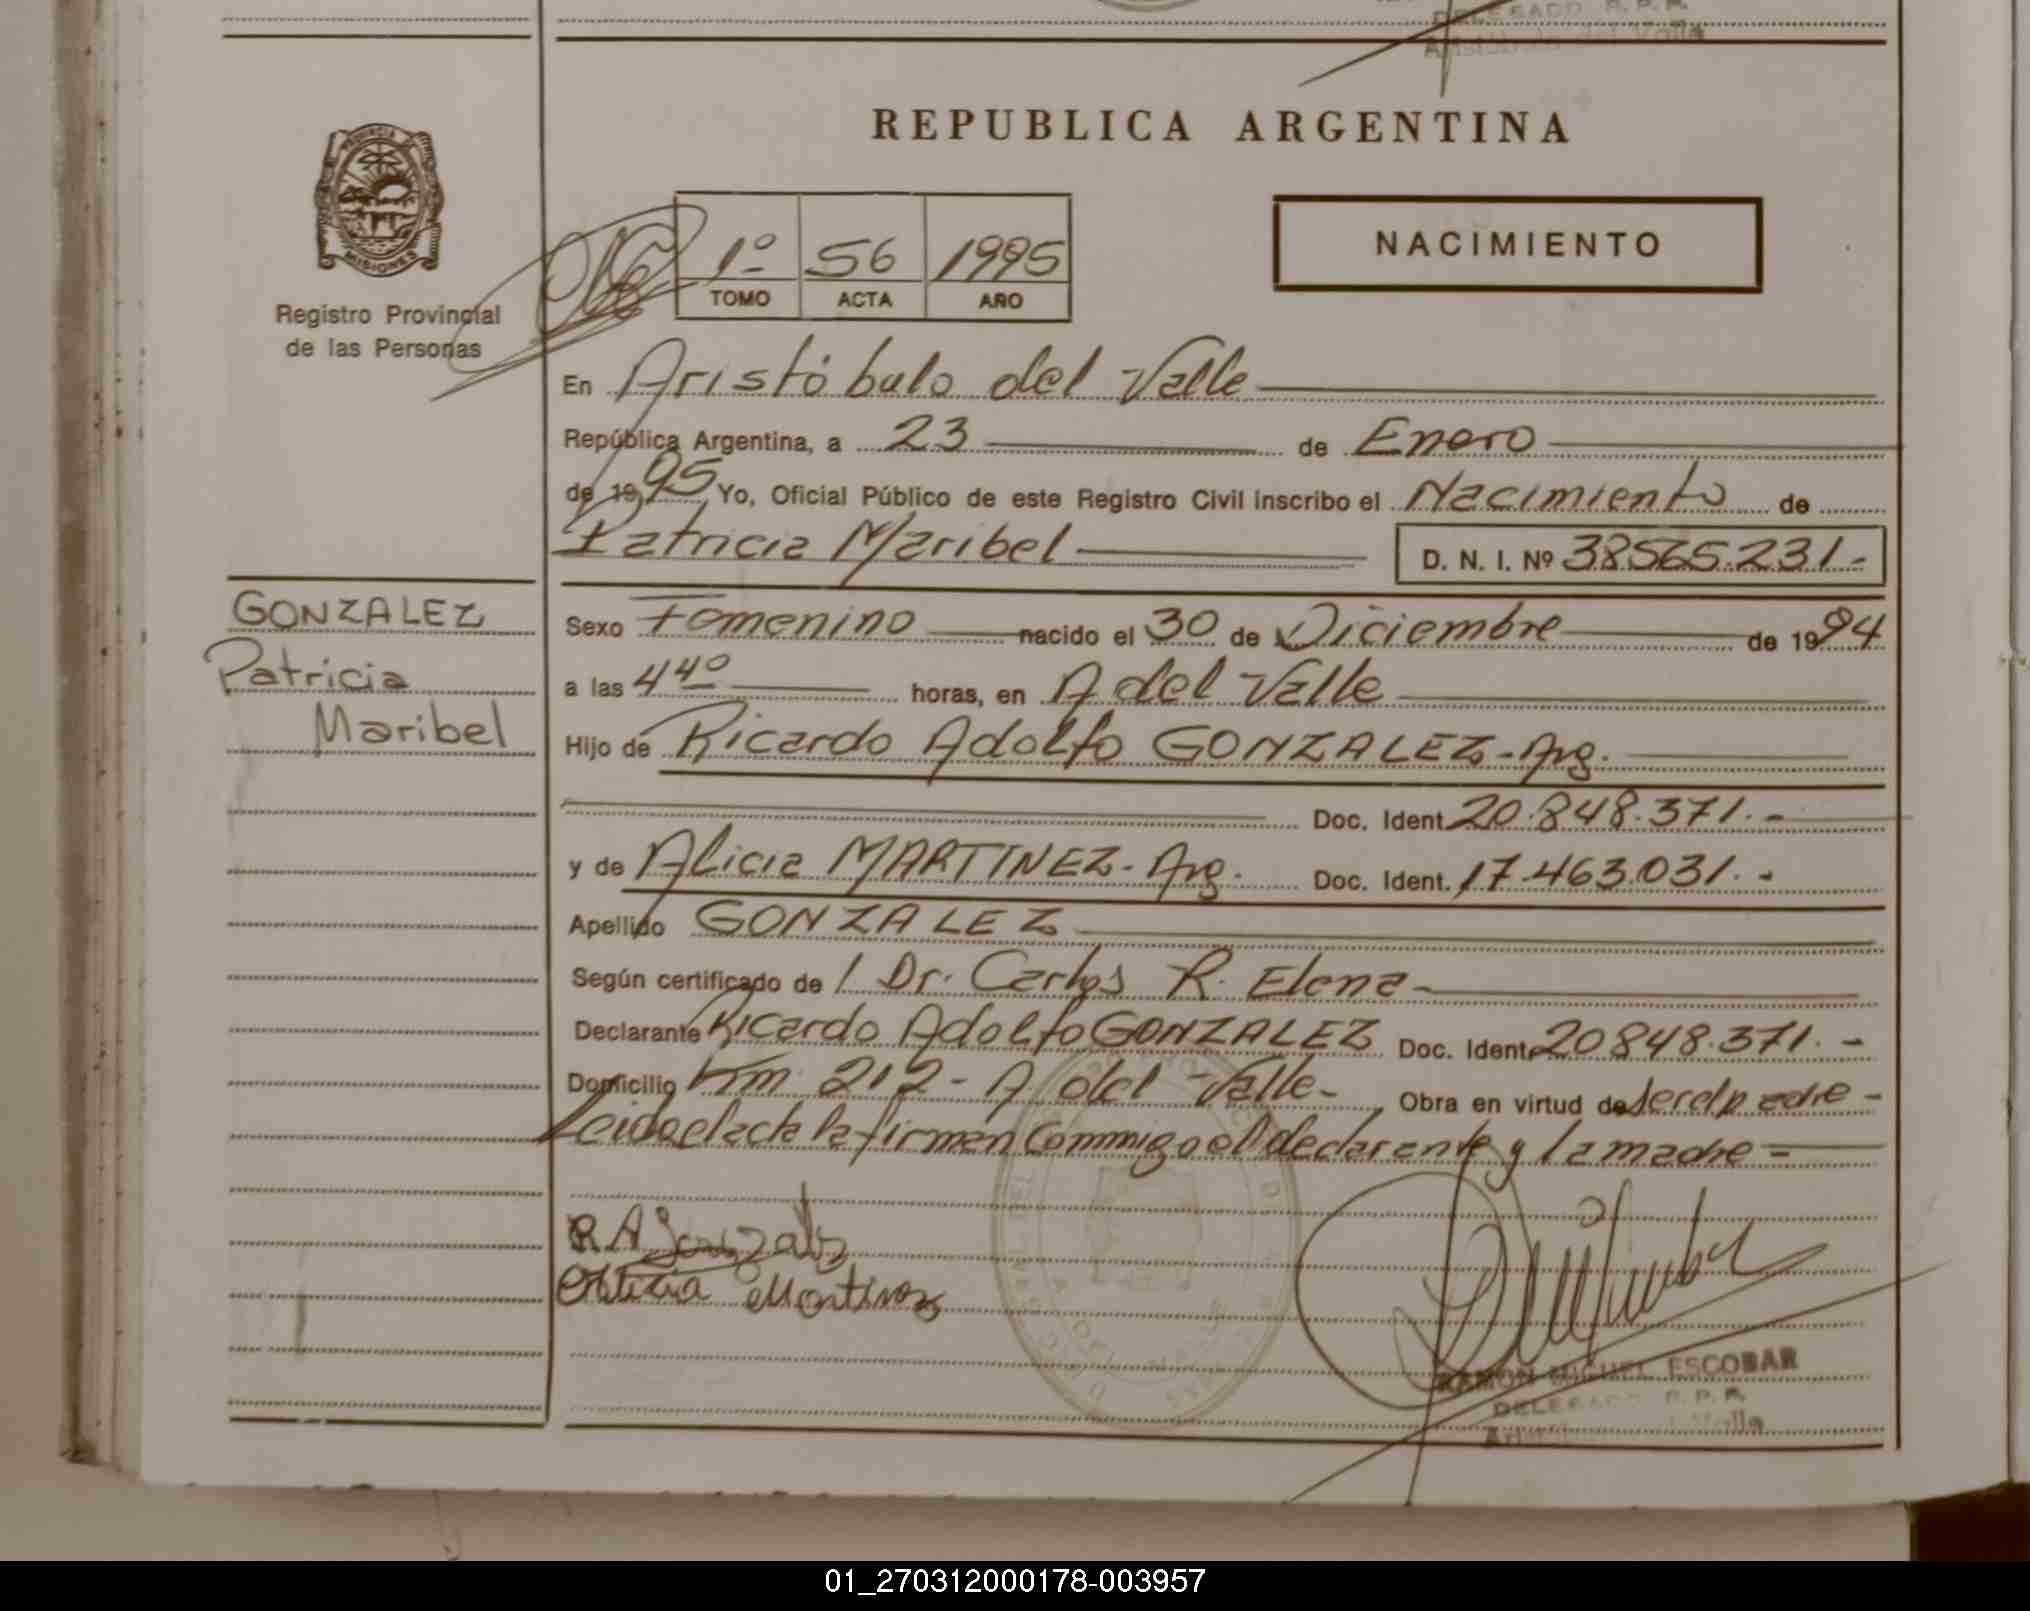 REPUBLICA ARGENTINA
PROVINCIA DE
MISIONES
Registro Provincial
de las Personas
1º 56 1995
TOMO ACTA AÑO
NACIMIENTO
En Aristóbulo del Valle
República Argentina, a 23 de Enero
de 1995 Yo, Oficial Público de este Registro Civil inscribo el Nacimiento de
Patricia Maribel D. N. I. Nº 38565.231.-
GONZALEZ
Patricia
Maribel
Sexo Femenino nacido el 30 de Diciembre de 1994
a las 4 40 horas, en A del Valle
Hijo de Ricardo Adolfo GONZALEZ-Arg.
Doc. Ident. 20.848.371.-
y de Alicia MARTINEZ-Arg. Doc. Ident. 17.463.031.-
Apellido GONZALEZ
Según certificado de / Dr. Carlos R. Elena-
Declarante Ricardo Adolfo GONZALEZ Doc. Ident. 20848.371.-
Domicilio Km. 212- A del Valle- Obra en virtud de ser el padre-
Leida el acta la firman conmigo el declarante y la madre-
R A Gonzalez
Alicia Martinez
RAMON MIGUEL ESCOBAR
DELEGADO R.P.P.
Valle
01_270312000178-003957